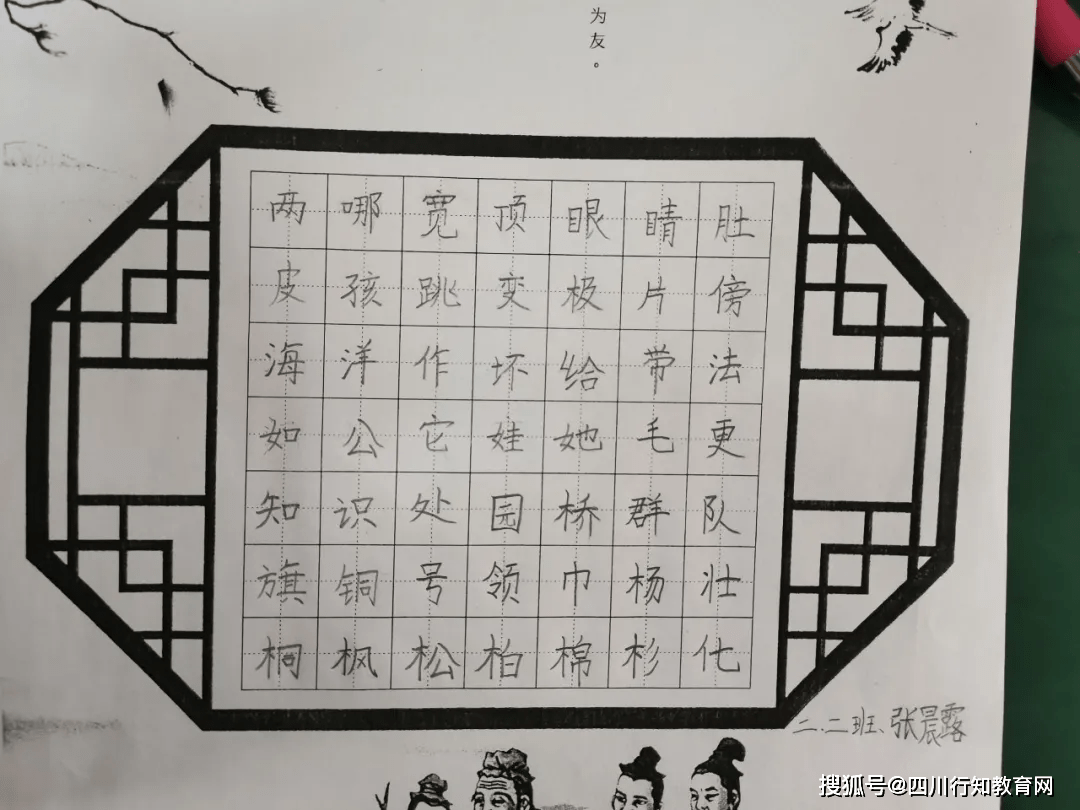 为友。
两哪宽顶眼睛肚
皮孩跳变极片傍
海洋作坏给带法
如公它娃她毛更
知识处园桥群队
旗铜号领巾杨壮
桐枫松柏棉杉化
二.二班、张晨露
搜狐号@四川行知教育网